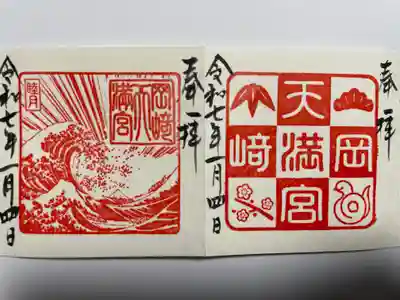 奉拝
岡﨑
天
満宮
睦月
令和七年一月四日
奉拝
岡
天満宮
﨑
令和七年一月四日